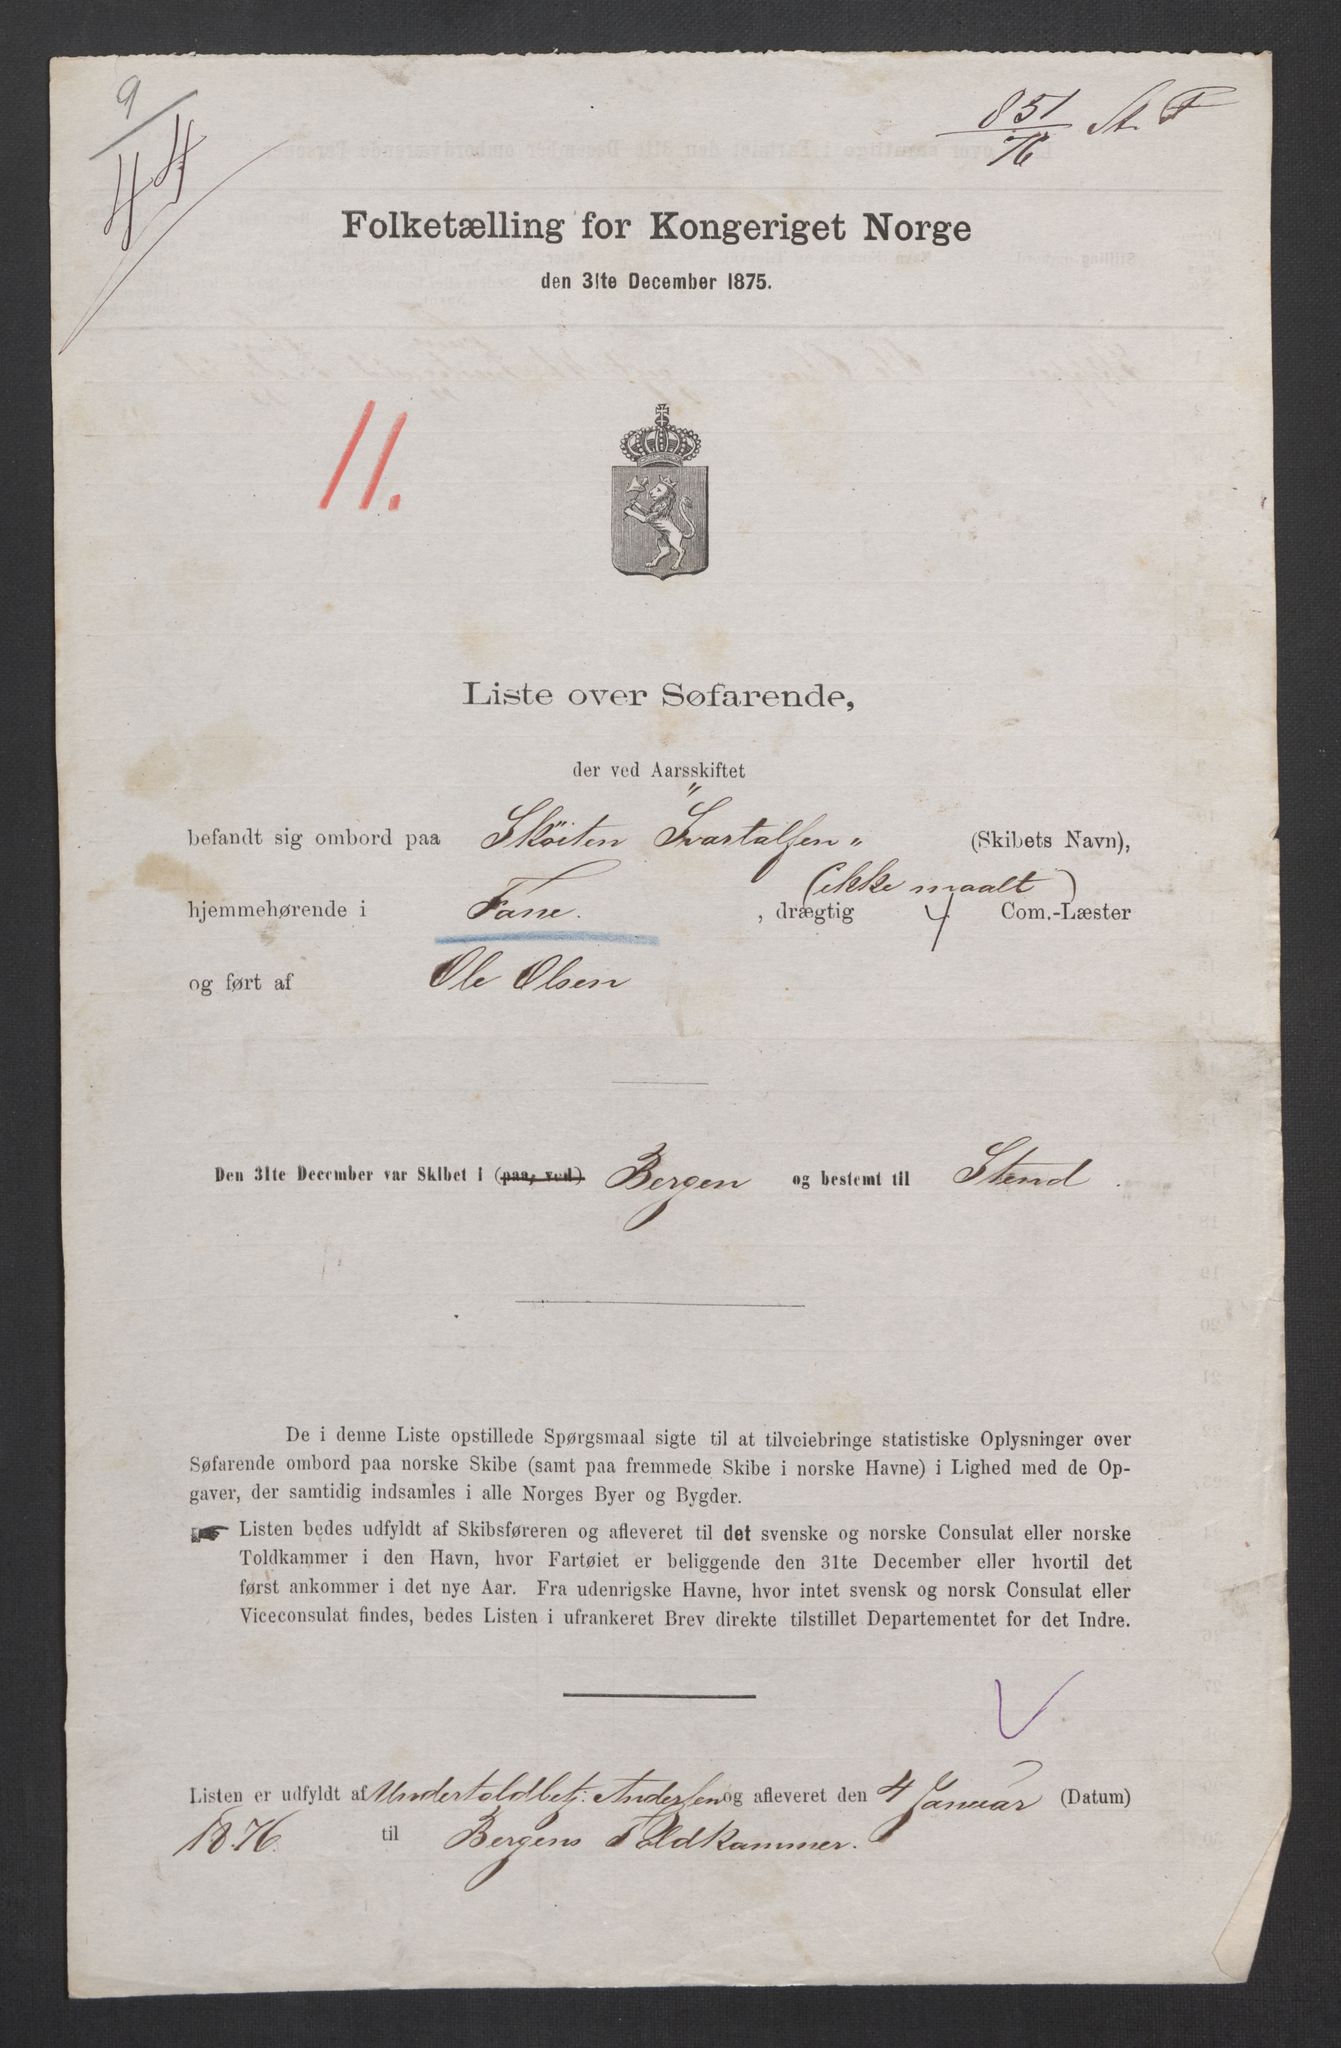 9
44
851/76 St. F
Folketælling for Kongeriget Norge
den 31te December 1875.
11.
Liste over Søfarende,
der ved Aarsskiftet
befandt sig ombord paa Skøiten "Svartalfen" (Skibets Navn),
(ikke maalt)
hjemmehørende i Fane. , drægtig 4 Com.-Læster
og ført af Ole Olsen
Den 31te December var Skibet i (paa, ved) Bergen og bestemt til Stend .
De i denne Liste opstillede Spørgsmaal sigte til at tilveiebringe statistiske Oplysninger over
Søfarende ombord paa norske Skibe (samt paa fremmede Skibe i norske Havne) i Lighed med de Op-
gaver, der samtidig indsamles i alle Norges Byer og Bygder.
Listen bedes udfyldt af Skibsføreren og afleveret til det svenske og norske Consulat eller norske
Toldkammer i den Havn, hvor Fartøiet er beliggende den 31te December eller hvortil det
først ankommer i det nye Aar. Fra udenrigske Havne, hvor intet svensk og norsk Consulat eller
Viceconsulat findes, bedes Listen i ufrankeret Brev direkte tilstillet Departementet for det Indre.
Listen er udfyldt af Undertoldbetj: Andersen og afleveret den 4 Januar (Datum)
1876. til Bergens Toldkammer.